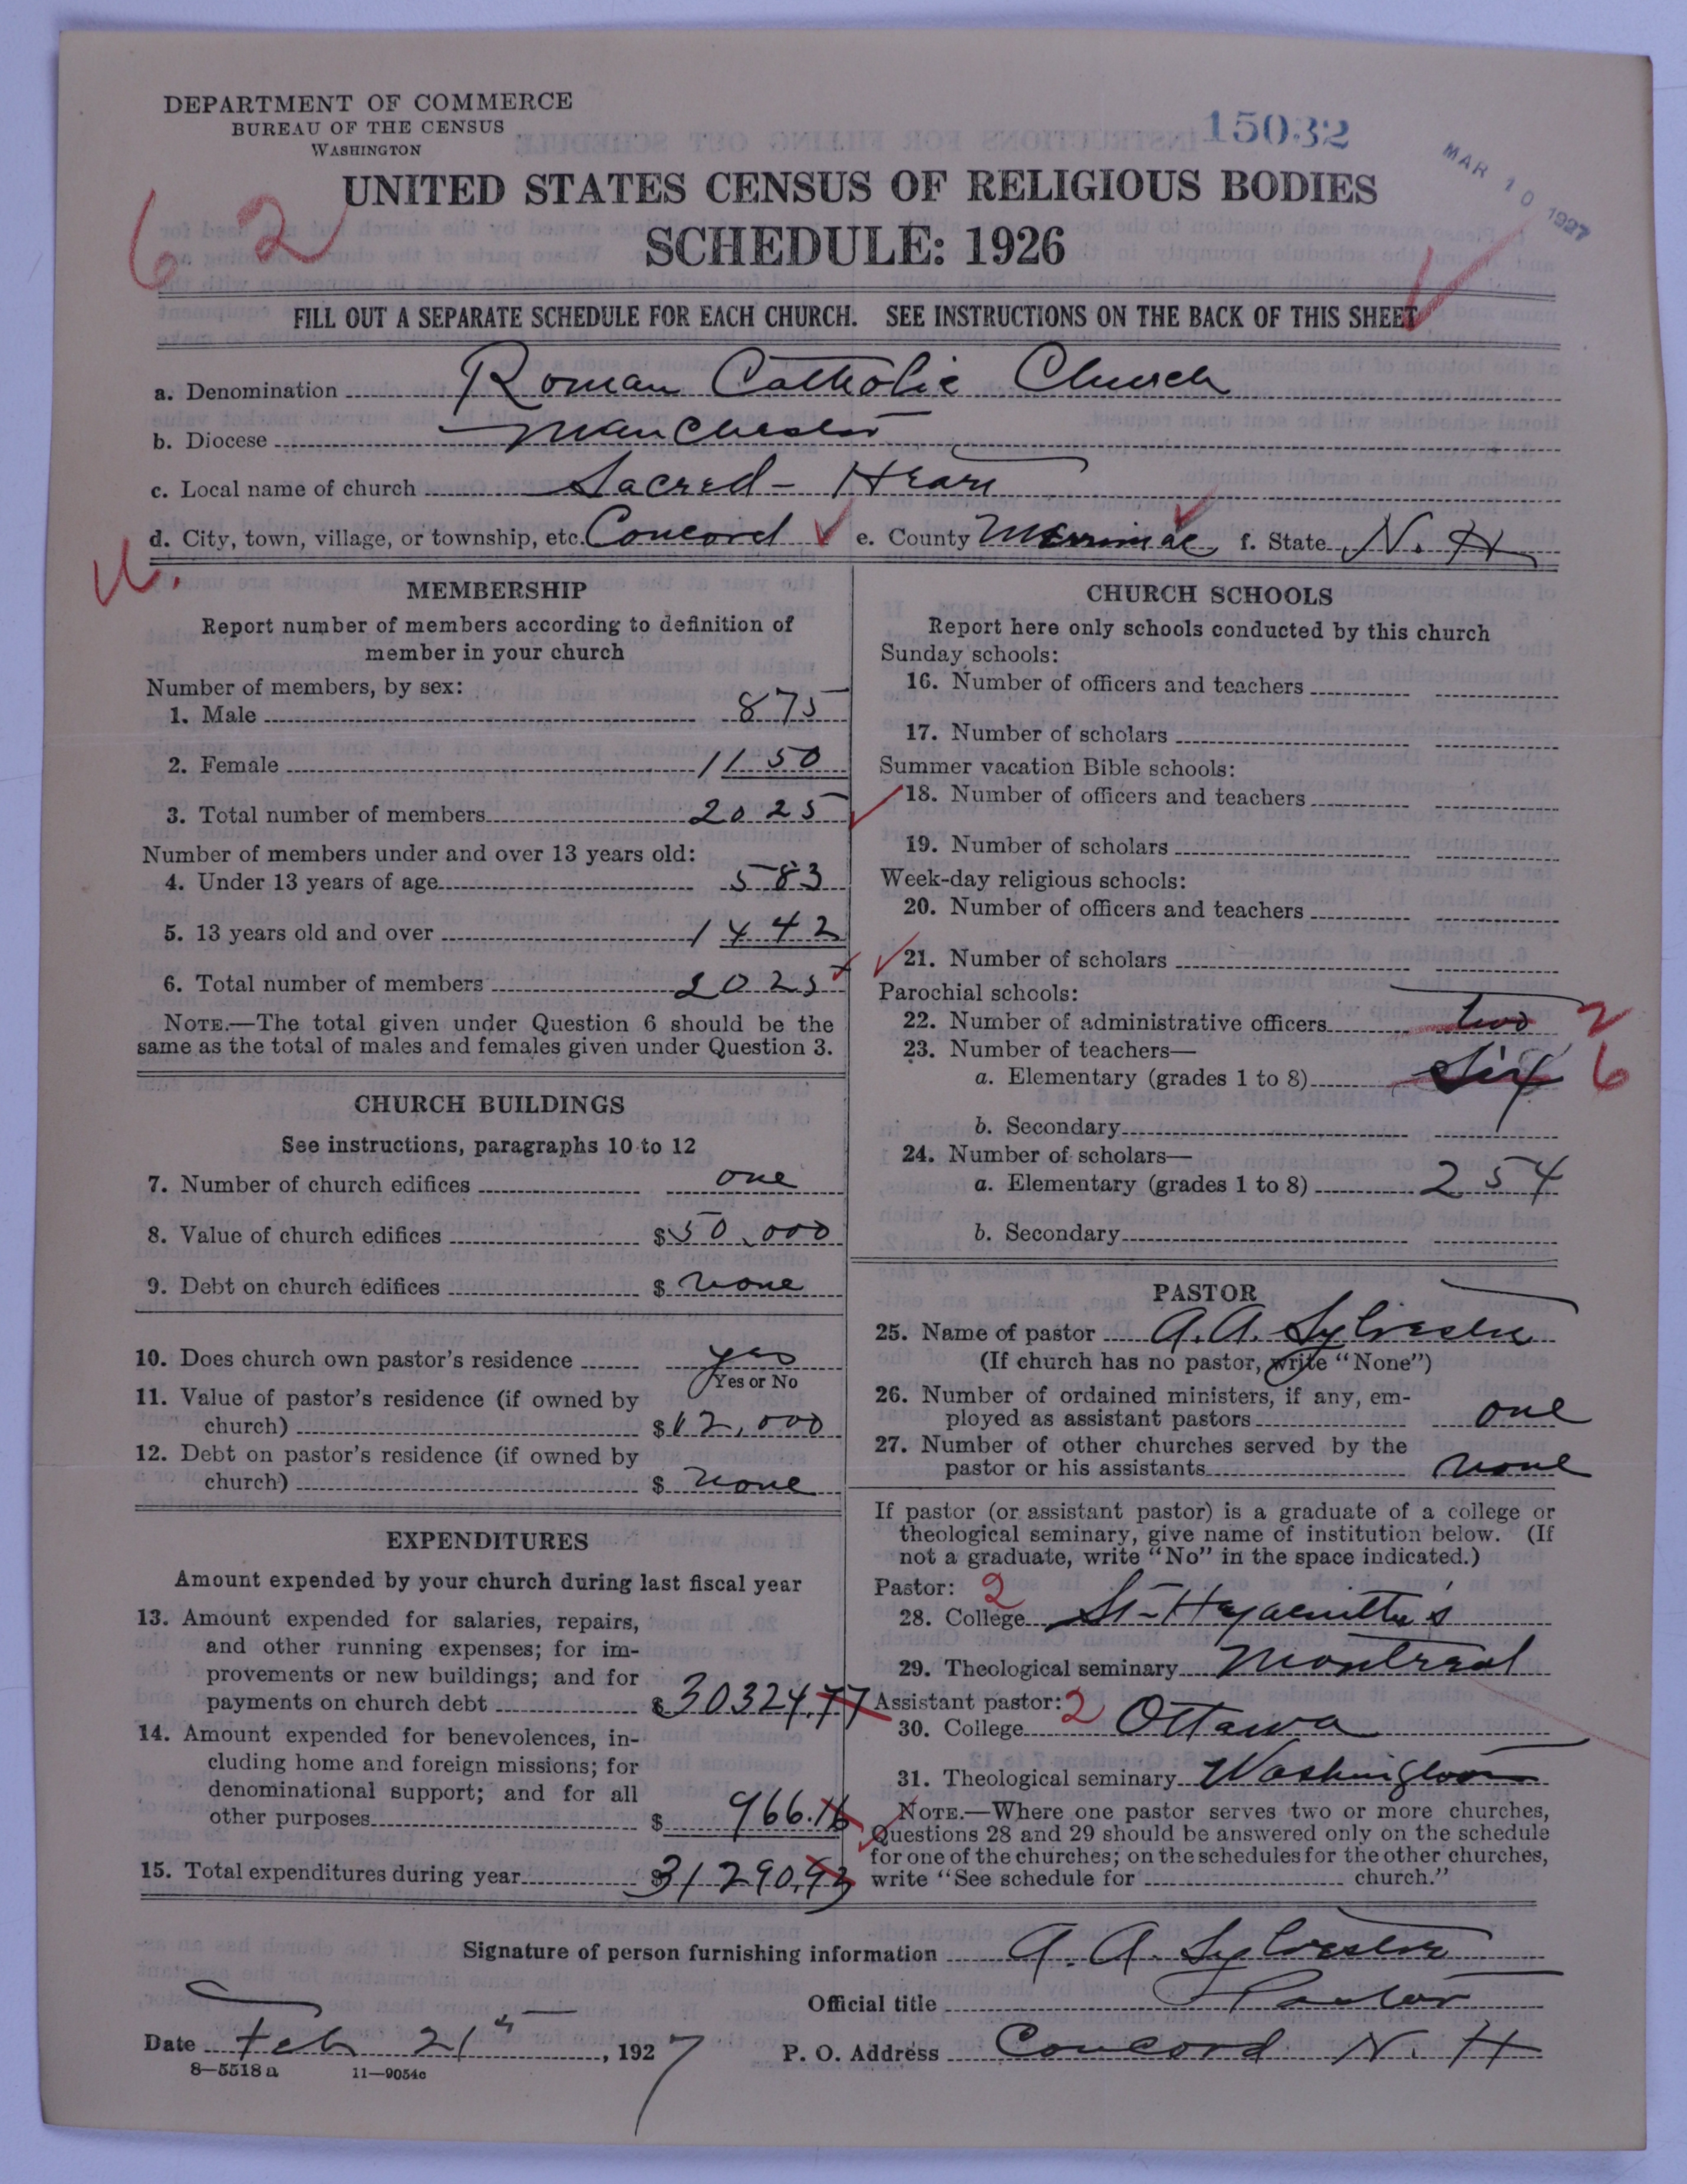 DEPARTMENT OF COMMERCE
BUREAU OF THE CENSUS
WASHINGTON
15032
MAR 10 1927
UNITED STATES CENSUS OF RELIGIOUS BODIES
SCHEDULE: 1926
62
FILL OUT A SEPARATE SCHEDULE FOR EACH CHURCH. SEE INSTRUCTIONS ON THE BACK OF THIS SHEET
a. Denomination Roman Catholic Church
b. Diocese Manchester
c. Local name of church Sacred-Heart
d. City, town, village, or township, etc. Concord e. County Merrimac f. State N. H
MEMBERSHIP
Report number of members according to definition of
member in your church
Number of members, by sex:
1. Male 875
2. Female 1150
3. Total number of members 2025
Number of members under and over 13 years old:
4. Under 13 years of age 583
5. 13 years old and over 1442
6. Total number of members 2025
NOTE.—The total given under Question 6 should be the
same as the total of males and females given under Question 3.
CHURCH BUILDINGS
See instructions, paragraphs 10 to 12
7. Number of church edifices one
8. Value of church edifices $50,000
9. Debt on church edifices $ none
10. Does church own pastor's residence yes
Yes or No
11. Value of pastor's residence (if owned by
church) $12,000
12. Debt on pastor's residence (if owned by
church) $ none
EXPENDITURES
Amount expended by your church during last fiscal year
13. Amount expended for salaries, repairs,
and other running expenses; for im-
provements or new buildings; and for
payments on church debt $30324.77
14. Amount expended for benevolences, in-
cluding home and foreign missions; for
denominational support; and for all
other purposes $ 966.16
15. Total expenditures during year $31290.93
CHURCH SCHOOLS
Report here only schools conducted by this church
Sunday schools:
16. Number of officers and teachers
17. Number of scholars
Summer vacation Bible schools:
18. Number of officers and teachers
19. Number of scholars
Week-day religious schools:
20. Number of officers and teachers
21. Number of scholars
Parochial schools:
22. Number of administrative officers two 2
23. Number of teachers—
a. Elementary (grades 1 to 8) Six 6
b. Secondary
24. Number of scholars—
a. Elementary (grades 1 to 8) 254
b. Secondary
PASTOR
25. Name of pastor A. A. Sylvestre
(If church has no pastor, write "None")
26. Number of ordained ministers, if any, em-
ployed as assistant pastors one
27. Number of other churches served by the
pastor or his assistants none
If pastor (or assistant pastor) is a graduate of a college or
theological seminary, give name of institution below. (If
not a graduate, write "No" in the space indicated.)
Pastor: 2
28. College St-Hyacinthe's
29. Theological seminary Montreal
Assistant pastor: 2
30. College Ottawa
31. Theological seminary Washington
NOTE.—Where one pastor serves two or more churches,
Questions 28 and 29 should be answered only on the schedule
for one of the churches; on the schedules for the other churches,
write "See schedule for church."
Signature of person furnishing information A. A. Sylvestre
Official title Pastor
Date Feb 21st, 1927
P. O. Address Concord N. H
8—5518a 11—9054c